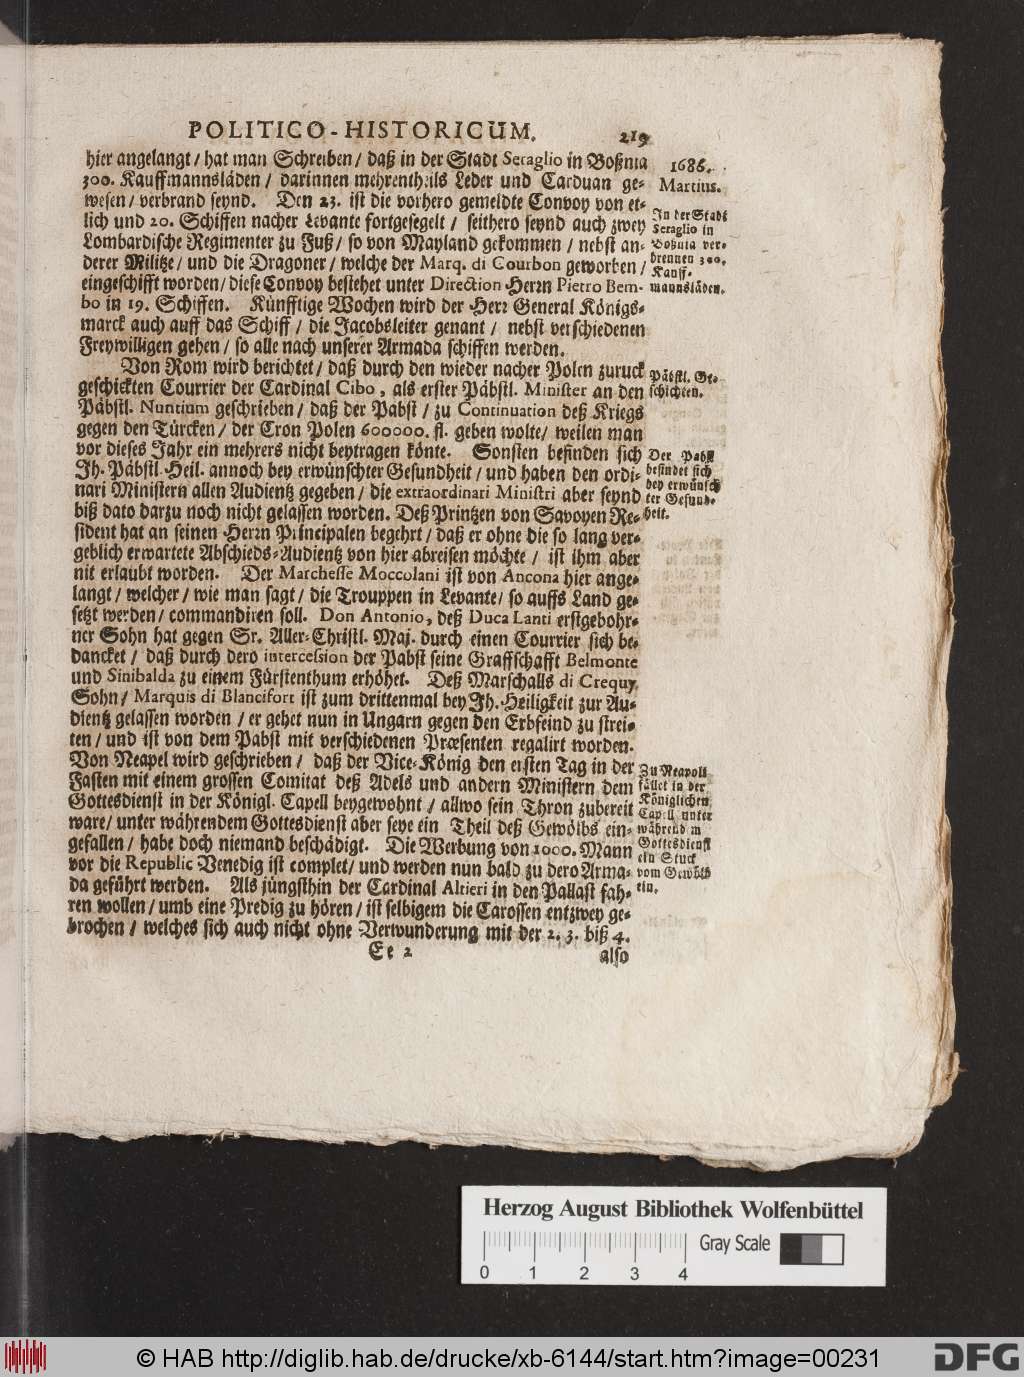 POLITICO-HISTORICUM. 219
hier angelangt / hat man Schreiben / daß in der Stadt Seraglio in Boßnia
300. Kauffmannsläden / darinnen mehrentheils Leder und Carduan ge-
wesen / verbrand seynd. Den 23. ist die vorhero gemeldte Convoy von et-
lich und 20. Schiffen nacher Levante fortgesegelt / seithero seynd auch zwey
Lombardische Regimenter zu Fuß / so von Mayland gekommen / nebst an-
derer Militze / und die Dragoner / welche der Marq. di Courbon geworben /
eingeschifft worden / diese Convoy bestehet unter Direction Herrn Pietro Bem-
bo in 19. Schiffen. Künfftige Wochen wird der Herr General Königs-
marck auch auff das Schiff / die Jacobsleiter genant / nebst verschiedenen
Freywilligen gehen / so alle nach unserer Armada schiffen werden.
Von Rom wird berichtet / daß durch den wieder nacher Polen zuruck
geschickten Courrier der Cardinal Cibo, als erster Päbstl. Minister an den
Päbstl. Nuntium geschrieben / daß der Pabst / zu Continuation deß Kriegs
gegen den Türcken / der Cron Polen 600000. fl. geben wolte / weilen man
vor dieses Jahr ein mehrers nicht beytragen könte. Sonsten befinden sich
Ih. Päbstl. Heil. annoch bey erwünschter Gesundheit / und haben den ordi-
nari Ministern allen Audientz gegeben / die extraordinari Ministri aber seynd
biß dato darzu noch nicht gelassen worden. Deß Printzen von Savoyen Re-
sident hat an seinen Herrn Principalen begehrt / daß er ohne die so lang ver-
geblich erwartete Abschieds-Audientz von hier abreisen möchte / ist ihm aber
nit erlaubt worden. Der Marchesse Moccolani ist von Ancona hier ange-
langt / welcher / wie man sagt / die Trouppen in Levante / so auffs Land ge-
setzt werden / commandiren soll. Don Antonio, deß Duca Lanti erstgebohr-
ner Sohn hat gegen Sr. Aller-Christl. Maj. durch einen Courrier sich be-
dancket / daß durch dero intercession der Pabst seine Graffschafft Belmonte
und Sinibalda zu einem Fürstenthum erhöhet. Deß Marschalls di Crequy
Sohn / Marquis di Blancifort ist zum drittenmal bey Ih. Heiligkeit zur Au-
dientz gelassen worden / er gehet nun in Ungarn gegen den Erbfeind zu strei-
ten / und ist von dem Pabst mit verschiedenen Præsenten regalirt worden.
Von Neapel wird geschrieben / daß der Vice-König den ersten Tag in der
Fasten mit einem grossen Comitat deß Adels und andern Ministern dem
Gottesdienst in der Königl. Capell beygewohnt / allwo sein Thron zubereit
ware / unter währendem Gottesdienst aber seye ein Theil deß Gewölbs ein-
gefallen / habe doch niemand beschädigt. Die Werbung von 1000. Mann
vor die Republic Venedig ist complet / und werden nun bald zu dero Arma-
da geführt werden. Als jüngsthin der Cardinal Altieri in den Pallast fah-
ren wollen / umb eine Predig zu hören / ist selbigem die Carossen entzwey ge-
brochen / welches sich auch nicht ohne Verwunderung mit der 2. 3. biß 4.
Ee 2 also
1686.
Martius.
In der Stadt
Seraglio in
Boßnia ver-
brennen 300.
Kauff-
mannsläden.
Päbstl. Ge-
schichten.
Der Pabst
befindet sich
bey erwünsch
ter Gesund-
heit.
Zu Neapoli
fället in der
Königlichen
Capell unter
während m
Gottesdienst
ein Stuck
vom Gewölb
ein.
Herzog August Bibliothek Wolfenbüttel
0 1 2 3 4
Gray Scale
© HAB http://diglib.hab.de/drucke/xb-6144/start.htm?image=00231
DFG